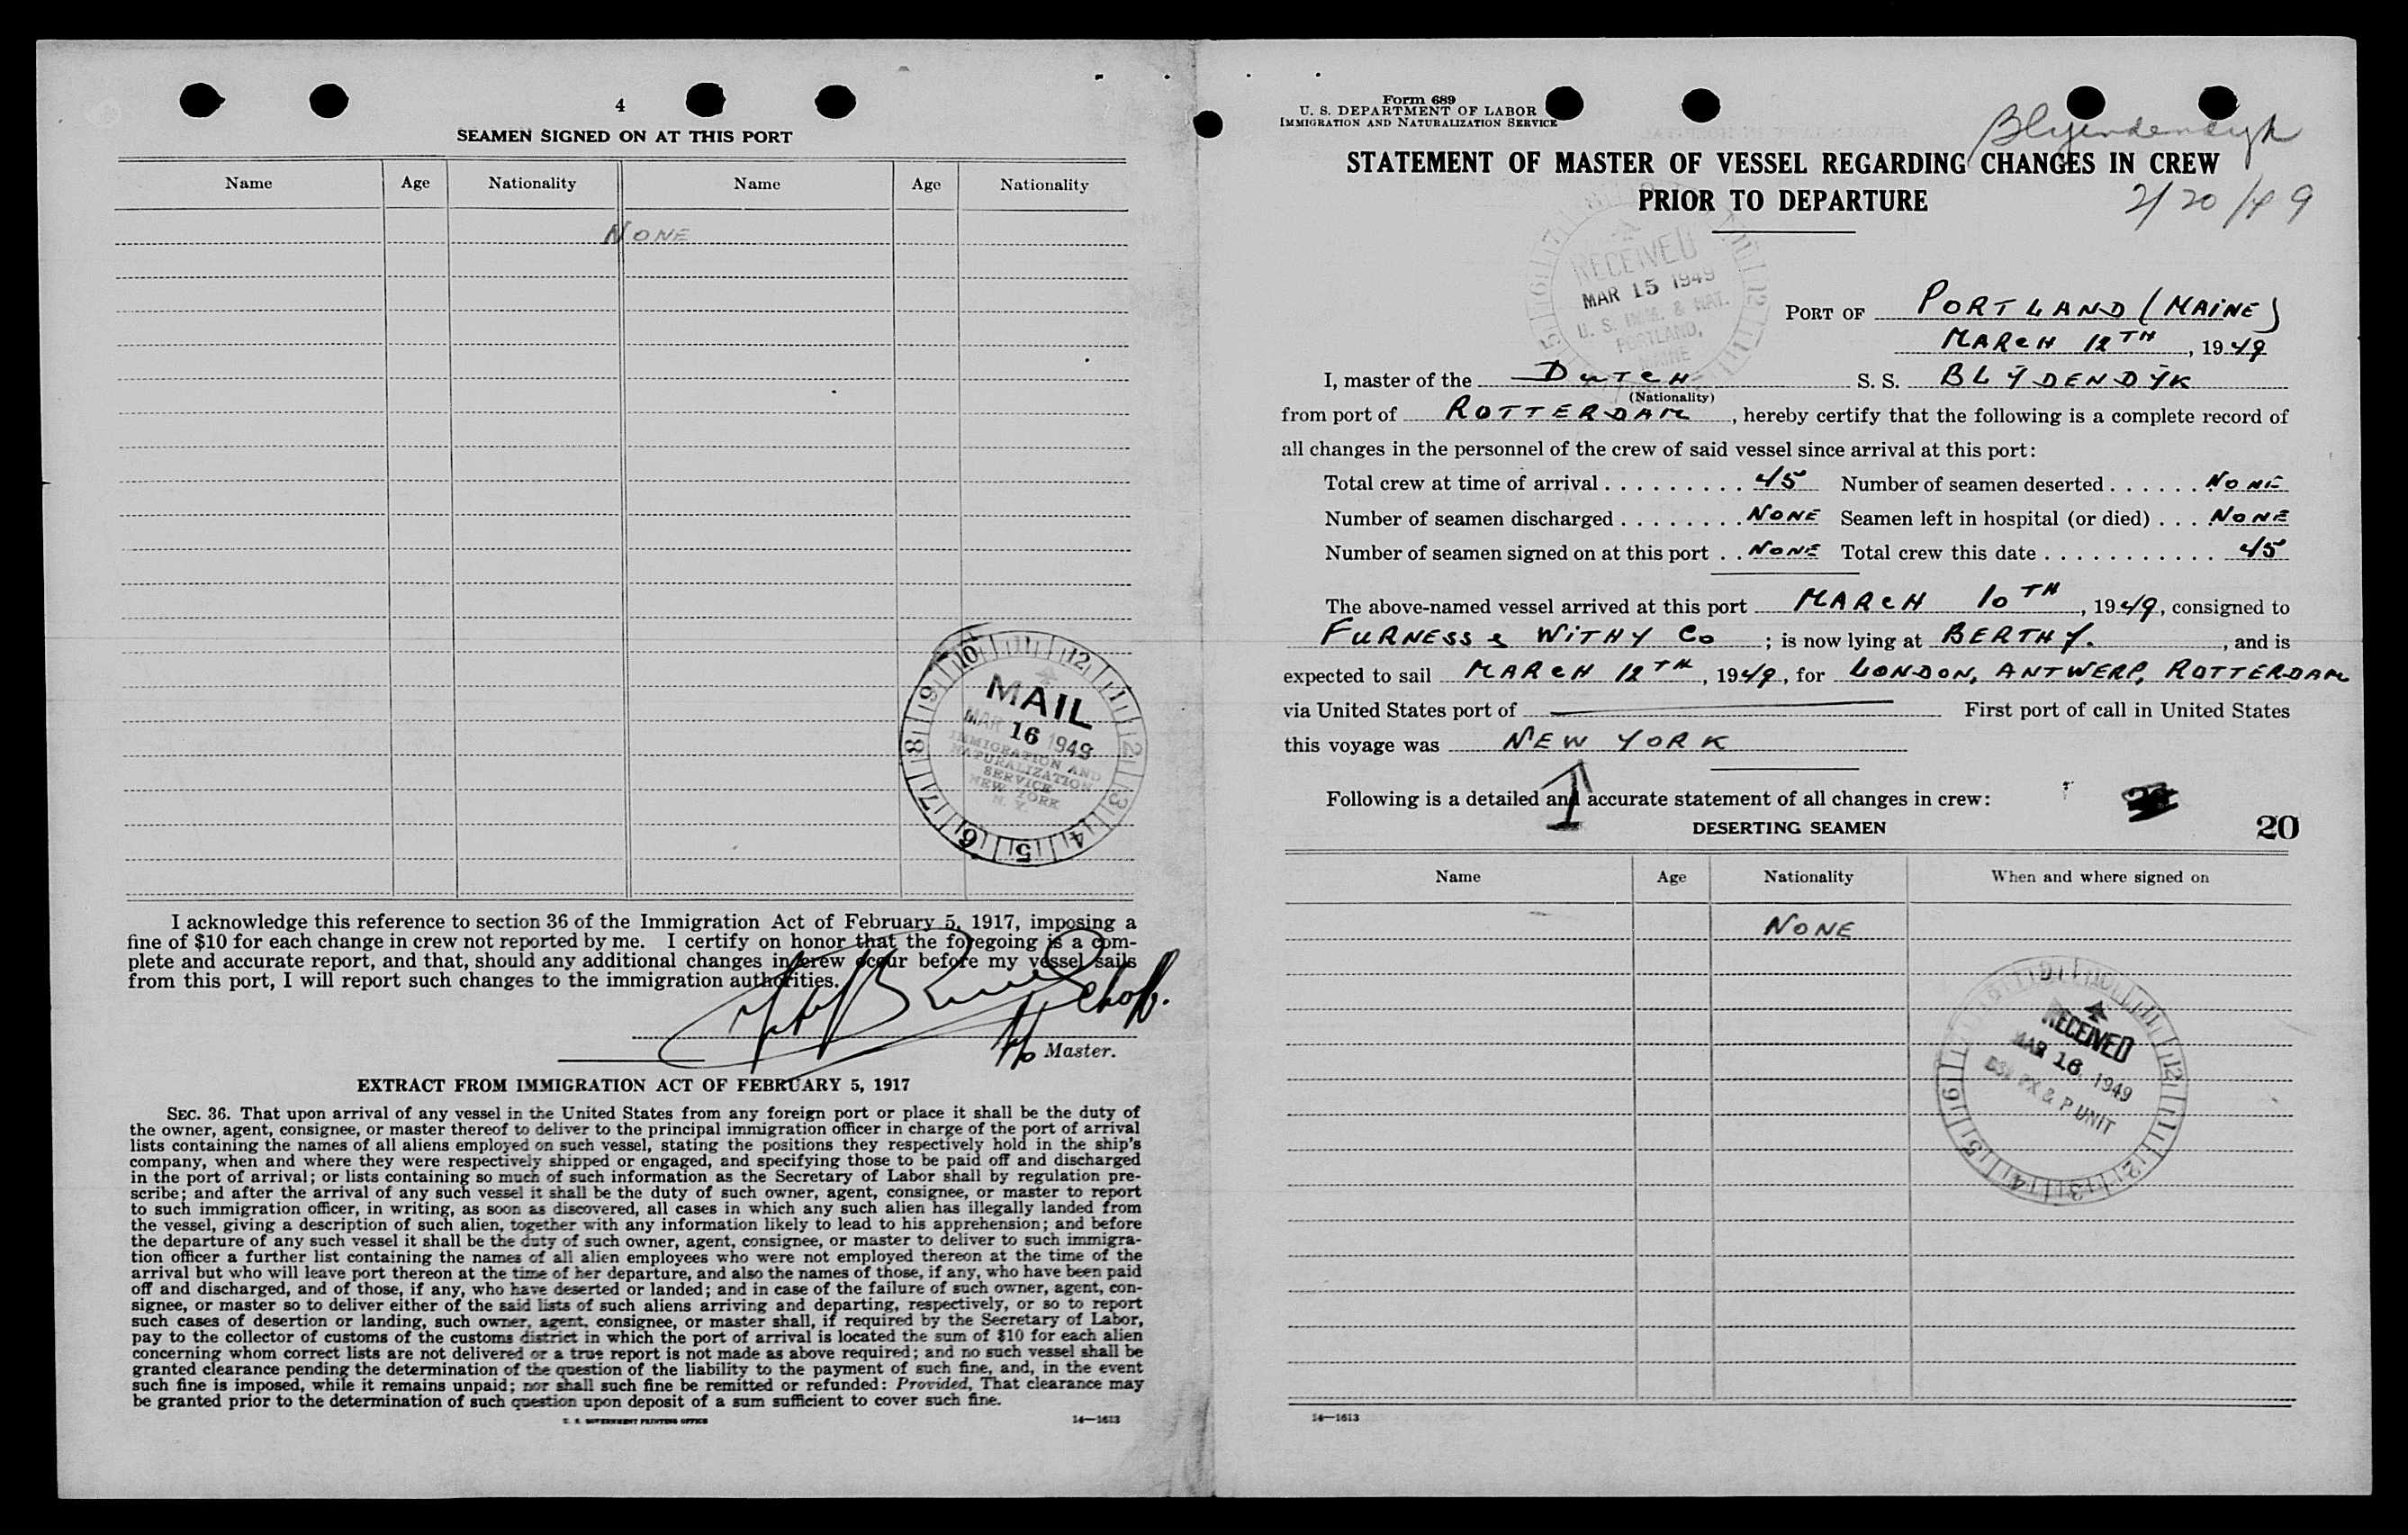 4
SEAMEN SIGNED ON AT THIS PORT
Name Age Nationality Name Age Nationality
NONE
10 12 1 2 3 4 5 6 7 8 9
MAIL
MAR 16 1949
IMMIGRATION AND
NATURALIZATION
SERVICE
NEW YORK
N. Y.
I acknowledge this reference to section 36 of the Immigration Act of February 5, 1917, imposing a
fine of $10 for each change in crew not reported by me. I certify on honor that the foregoing is a com-
plete and accurate report, and that, should any additional changes in crew occur before my vessel sails
from this port, I will report such changes to the immigration authorities.
Ch off.
Master.
EXTRACT FROM IMMIGRATION ACT OF FEBRUARY 5, 1917
SEC. 36. That upon arrival of any vessel in the United States from any foreign port or place it shall be the duty of
the owner, agent, consignee, or master thereof to deliver to the principal immigration officer in charge of the port of arrival
lists containing the names of all aliens employed on such vessel, stating the positions they respectively hold in the ship's
company, when and where they were respectively shipped or engaged, and specifying those to be paid off and discharged
in the port of arrival; or lists containing so much of such information as the Secretary of Labor shall by regulation pre-
scribe; and after the arrival of any such vessel it shall be the duty of such owner, agent, consignee, or master to report
to such immigration officer, in writing, as soon as discovered, all cases in which any such alien has illegally landed from
the vessel, giving a description of such alien, together with any information likely to lead to his apprehension; and before
the departure of any such vessel it shall be the duty of such owner, agent, consignee, or master to deliver to such immigra-
tion officer a further list containing the names of all alien employees who were not employed thereon at the time of the
arrival but who will leave port thereon at the time of her departure, and also the names of those, if any, who have been paid
off and discharged, and of those, if any, who have deserted or landed; and in case of the failure of such owner, agent, con-
signee, or master so to deliver either of the said lists of such aliens arriving and departing, respectively, or so to report
such cases of desertion or landing, such owner, agent, consignee, or master shall, if required by the Secretary of Labor,
pay to the collector of customs of the customs district in which the port of arrival is located the sum of $10 for each alien
concerning whom correct lists are not delivered or a true report is not made as above required; and no such vessel shall be
granted clearance pending the determination of the question of the liability to the payment of such fine, and, in the event
such fine is imposed, while it remains unpaid; nor shall such fine be remitted or refunded: Provided, That clearance may
be granted prior to the determination of such question upon deposit of a sum sufficient to cover such fine.
U. S. GOVERNMENT PRINTING OFFICE 14—1613
Form 689
U. S. DEPARTMENT OF LABOR
IMMIGRATION AND NATURALIZATION SERVICE
Blyendendyk
STATEMENT OF MASTER OF VESSEL REGARDING CHANGES IN CREW
PRIOR TO DEPARTURE
2/20/49
RECEIVED
MAR 15 1949
U. S. IMM. & NAT.
PORTLAND,
MAINE
PORT OF PORTLAND (MAINE)
MARCH 12TH, 1949
I, master of the DUTCH S. S. BLŸDENDŸK
(Nationality)
from port of ROTTERDAM, hereby certify that the following is a complete record of
all changes in the personnel of the crew of said vessel since arrival at this port:
Total crew at time of arrival . . . . . . . . . 45 Number of seamen deserted . . . . . . NONE
Number of seamen discharged . . . . . . . . NONE Seamen left in hospital (or died) . . . NONE
Number of seamen signed on at this port . . NONE Total crew this date . . . . . . . . . . . 45
The above-named vessel arrived at this port MARCH 10TH, 1949, consigned to
FURNESS & WITHY Co; is now lying at BERTH 1., and is
expected to sail MARCH 12TH, 1949, for LONDON, ANTWERP, ROTTERDAM
via United States port of First port of call in United States
this voyage was NEW YORK
1
Following is a detailed and accurate statement of all changes in crew:
DESERTING SEAMEN
20
Name Age Nationality When and where signed on
NONE
RECEIVED
MAR 16 1949
PX & P UNIT
14—1613